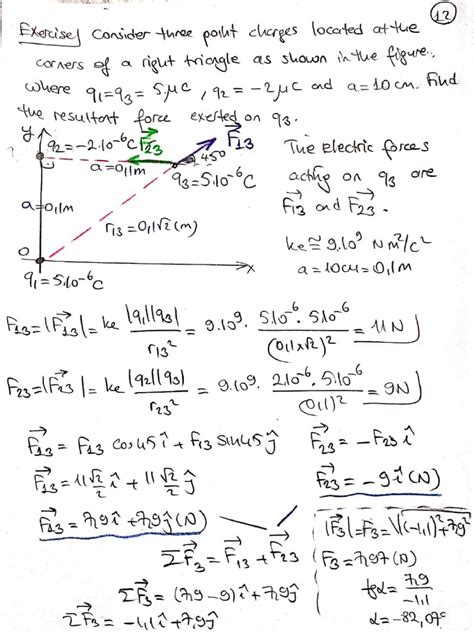 12
Exercise) Consider three point charges located at the
corners of a right triangle as shown in the figure,
where q₁=q₃=5μC, q₂=-2μC and a=10cm. Find
the resultant force exerted on q₃.
y
q₂=-2.10⁻⁶C
F⃗23
F⃗13
45°
a=0,1m
q₃=5.10⁻⁶C
a=0,1m
r13=0,1√2(m)
0
x
q₁=5.10⁻⁶C
The Electric forces
acting on q₃ are
F⃗13 and F⃗23.
ke≅9.10⁹ Nm²/C²
a=10cm=0,1m
F13=|F⃗13|=ke |q₁||q₃|/r13² = 9.10⁹. 5.10⁻⁶.5.10⁻⁶/(0,1x√2)² = 11N
F23=|F⃗23|=ke |q₂||q₃|/r23² = 9.10⁹. 2.10⁻⁶.5.10⁻⁶/(0,1)² = 9N
F⃗13 = F13 cos45 î + F13 sin45 ĵ
F⃗13 = 11√2/2 î + 11√2/2 ĵ
F⃗13 = 7,9î+7,9ĵ (N)
F⃗23 = -F23 î
F⃗23 = -9î (N)
ΣF⃗3 = F⃗13 + F⃗23
ΣF⃗3 = (7,9-9)î+7,9ĵ
ΣF⃗3 = -1,1î+7,9ĵ
|F⃗3|=F3=√(-1,1)²+7,9²
F3=7,97 (N)
tgα = 7,9/-1,1
α=-82,07°